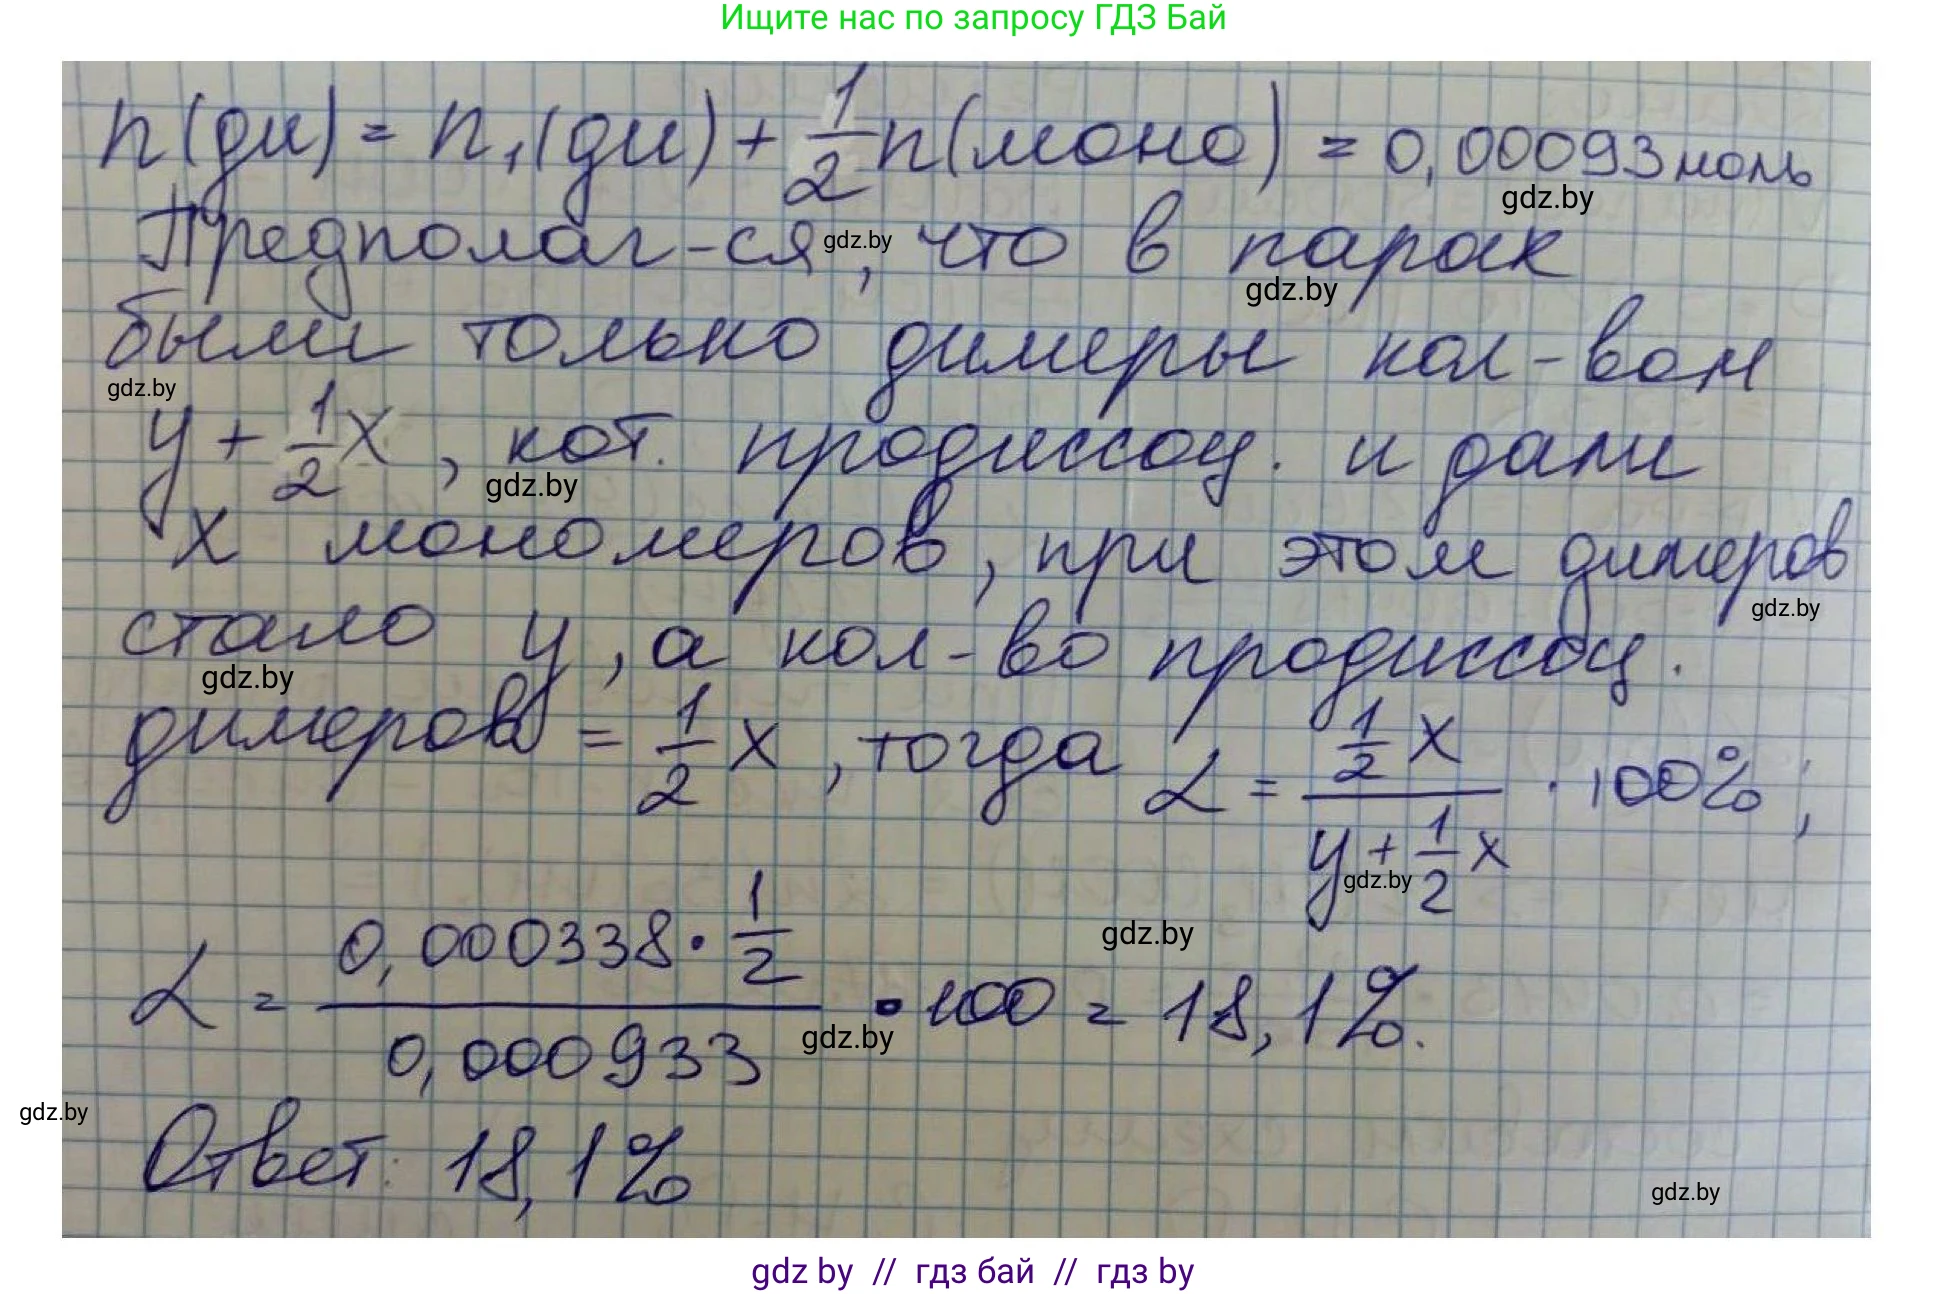 Ищите нас по запросу ГДЗ Бай
n(ди) = n₁(ди) + 1/2 n(моно) = 0,00093 моль
gdz.by
Предполаг-ся, что в парах
gdz.by
gdz.by
были только димеры кол-вом
gdz.by
y + 1/2 x, кот. продиссоц. и дали
gdz.by
x мономеров, при этом димеров
gdz.by
стало y, а кол-во продиссоц.
gdz.by
димеров = 1/2 x, тогда α = (1/2 x)/(y + 1/2 x) · 100%;
gdz.by
gdz.by
α = (0,000338 · 1/2)/(0,000933) · 100 = 18,1%.
gdz.by
gdz.by
Ответ: 18,1%
gdz.by
gdz by // гдз бай // гдз by